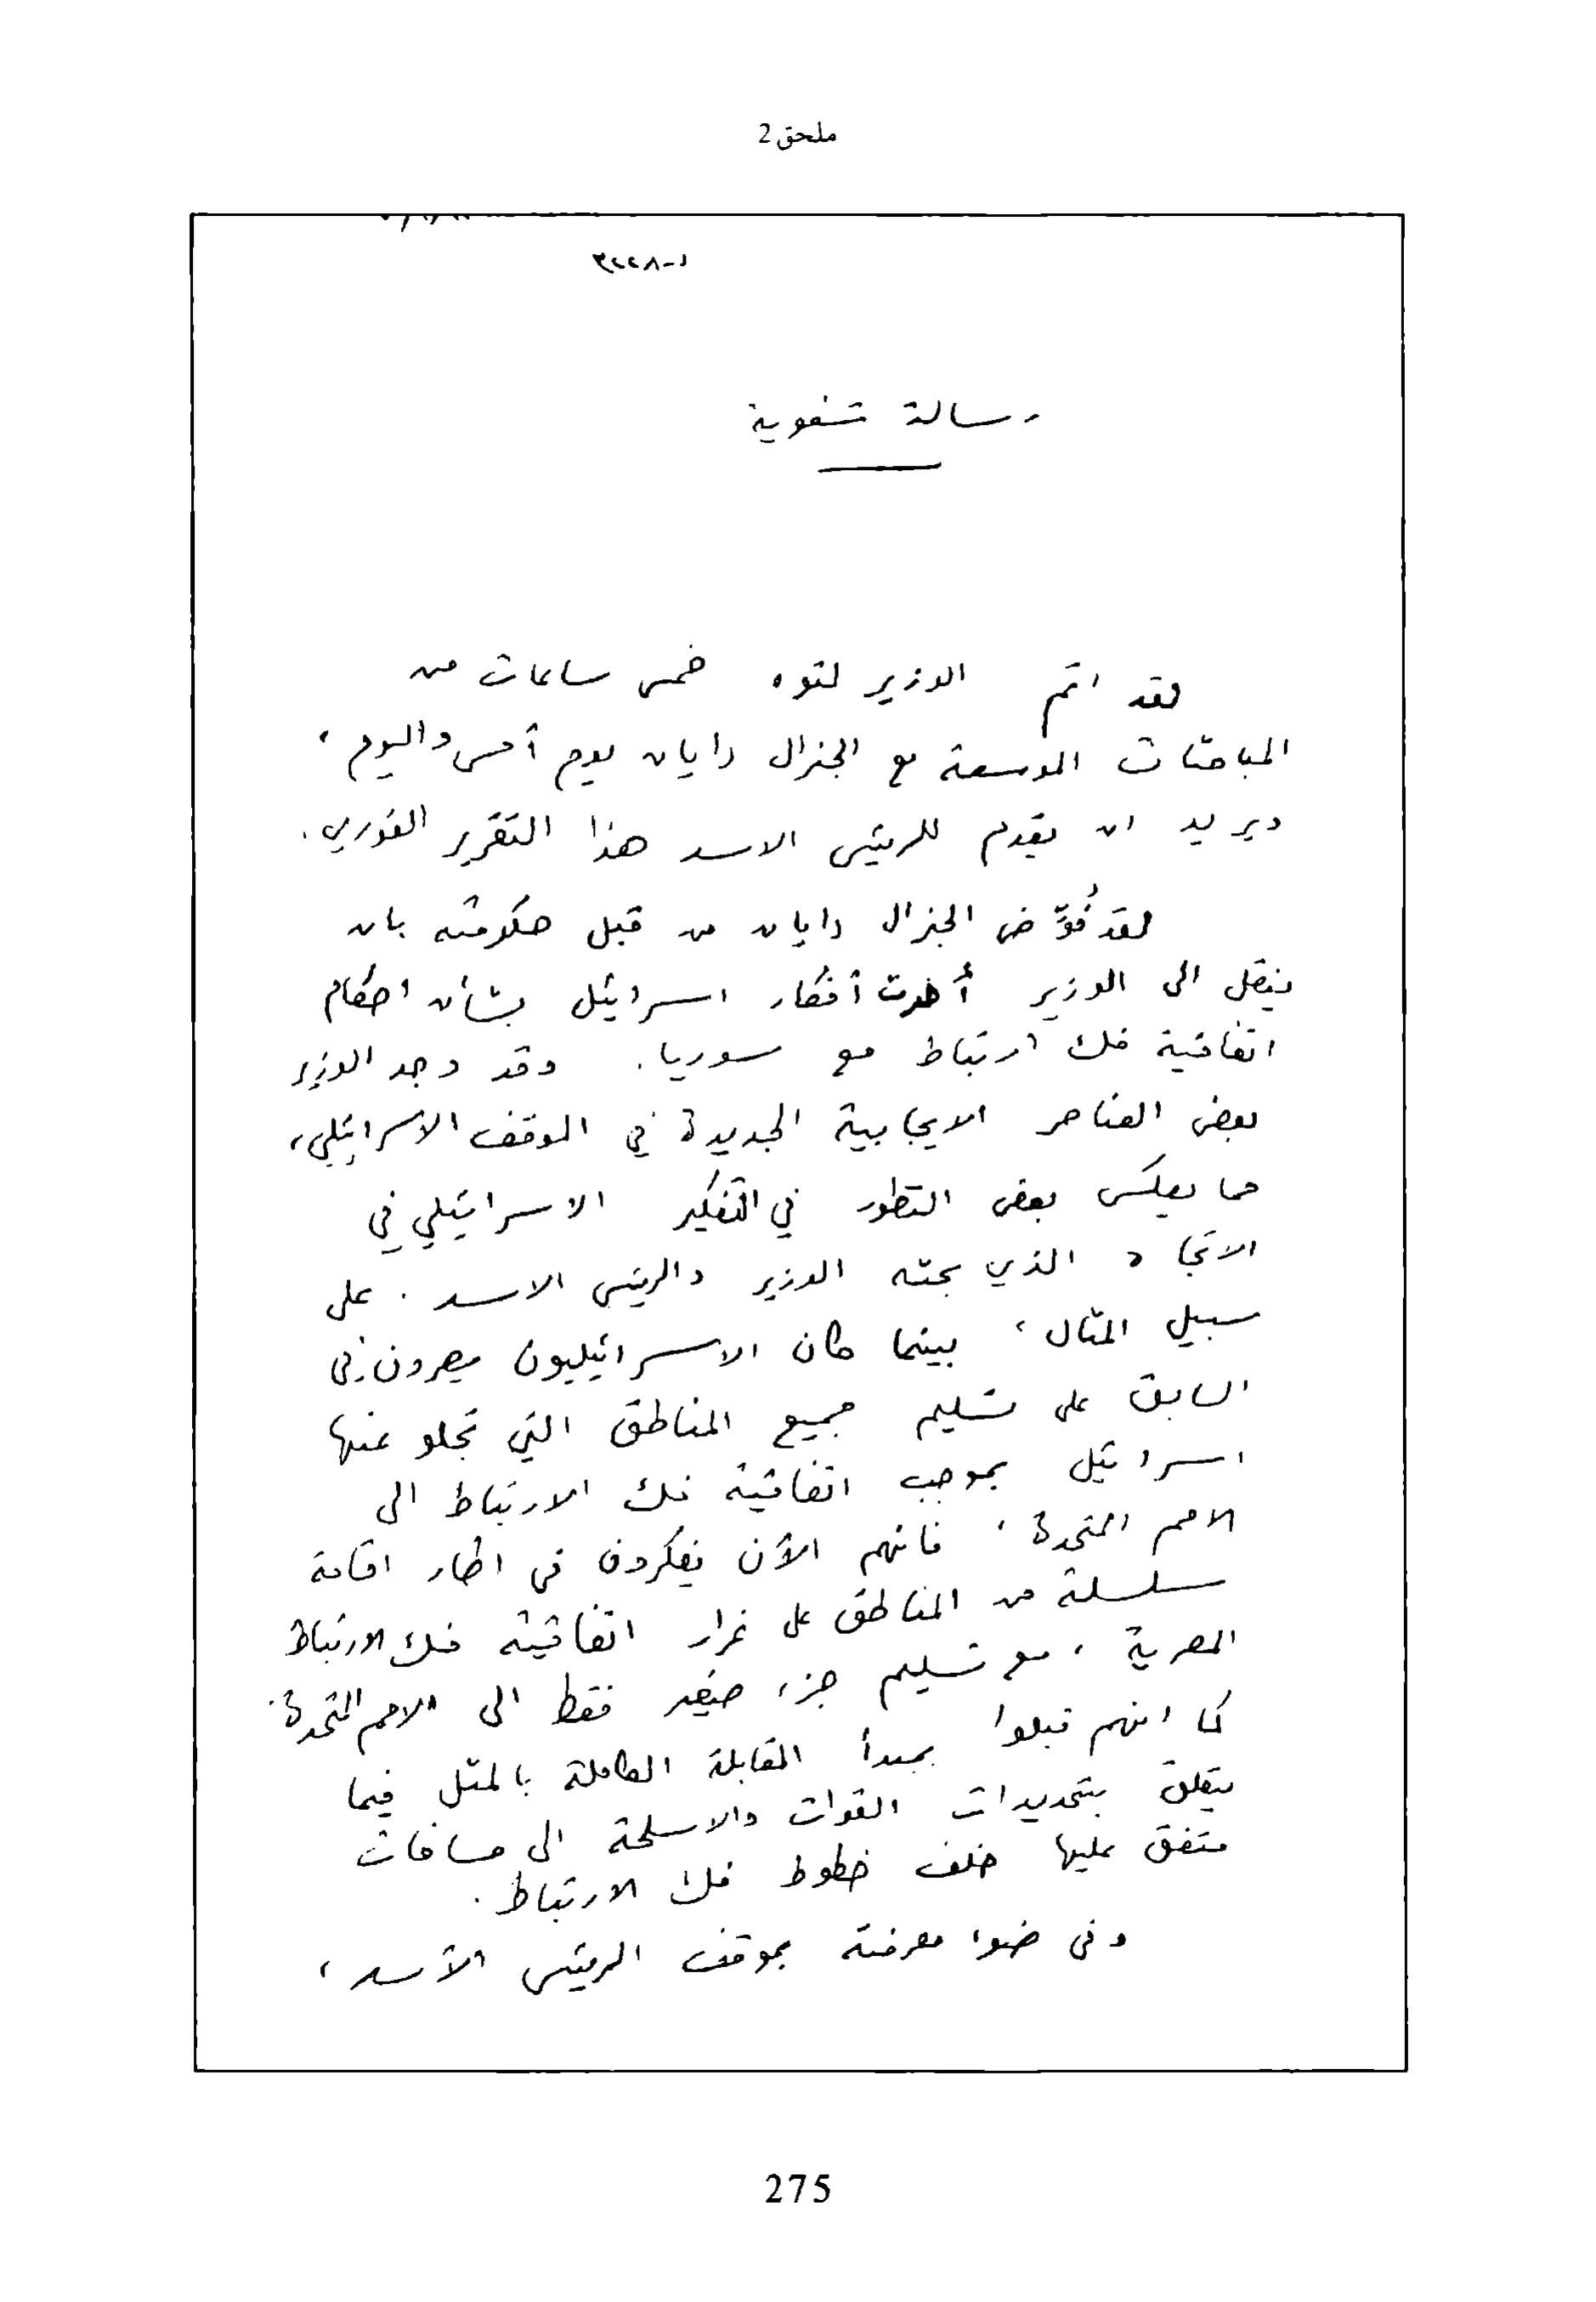 ملحق 2
٣٢٢٨-١
رسالة شفوية
لقد اتم الوزير لتوه خمس ساعات من
المباحثات الموسعة مع الجنرال دايان يوم أمس واليوم ،
ويريد ان يقدم للرئيس الاسد هذا التقرير الفوري .
لقد فُوّض الجنرال دايان من قبل حكومته بان
ينقل الى الوزير أحدث أفكار اسرائيل بشأن احكام
اتفاقية فك ارتباط مع سوريا . وقد وجد الوزير
بعض العناصر الايجابية الجديدة في الموقف الاسرائيلي ،
مما يعكس بعض التطور في التفكير الاسرائيلي في
الاتجاه الذي بحثه الوزير والرئيس الاسد . على
سبيل المثال ، بينما كان الاسرائيليون يصرون في
السابق على تسليم جميع المناطق التي تجلو عنها
اسرائيل بموجب اتفاقية فك الارتباط الى
الامم المتحدة ، فانهم الآن يفكرون في اطار اقامة
سلسلة من المناطق على غرار اتفاقية فك الارتباط
المصرية ، مع تسليم جزء صغير فقط الى الامم المتحدة .
كما انهم قبلوا بمبدأ المقابلة الكاملة بالمثل فيما
يتعلق بتحديدات القوات والاسلحة الى مسافات
متفق عليها خلف خطوط فك الارتباط .
وفي ضوء معرفته بموقف الرئيس الأسد ،
275